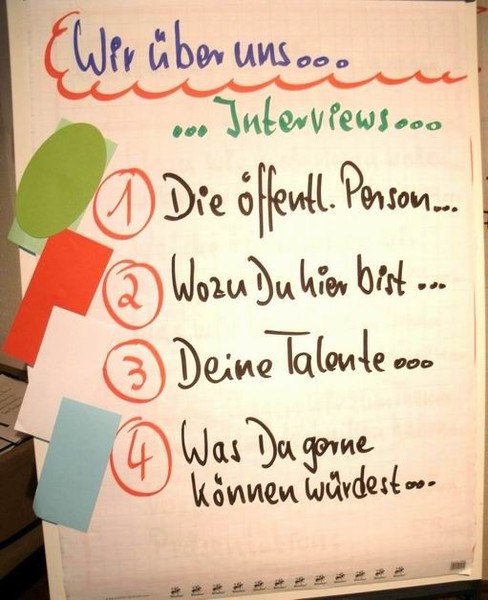 Wir über uns...
... Interviews...
1 Die öffentl. Person...
2 Wozu Du hier bist ...
3 Deine Talente...
4 Was Du gerne
können würdest...